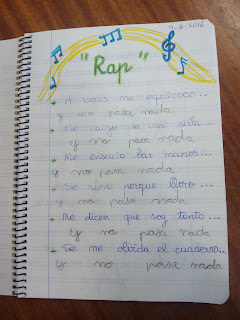 9-2-2016
"Rap"
A veces me equivoco...
y no pasa nada
Me caigo de una silla...
y no pasa nada
Me ensucio las manos...
y no pasa nada
Se ríen porque lloro...
y no pasa nada
Me dicen que soy tonto...
y no pasa nada
Se me olvida el cuaderno...
y no pasa nada